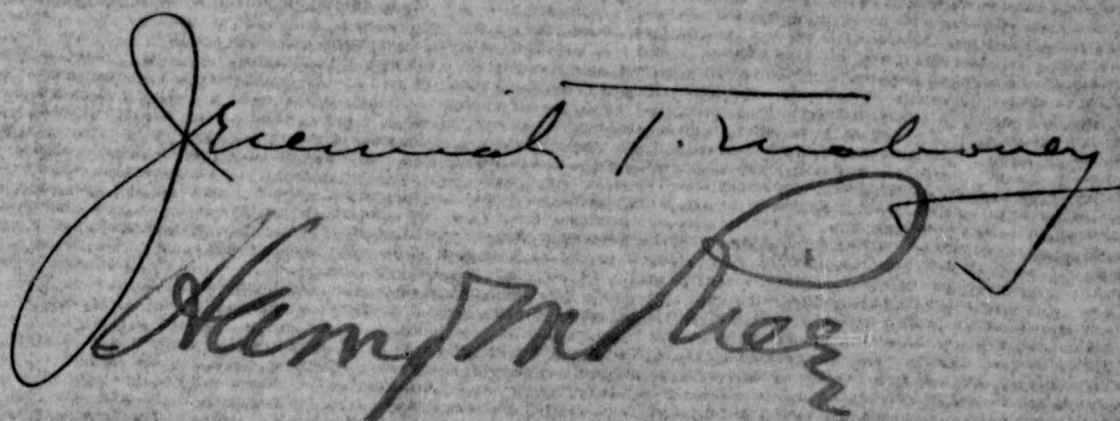 Jeremiah T. Mahoney
Harry M